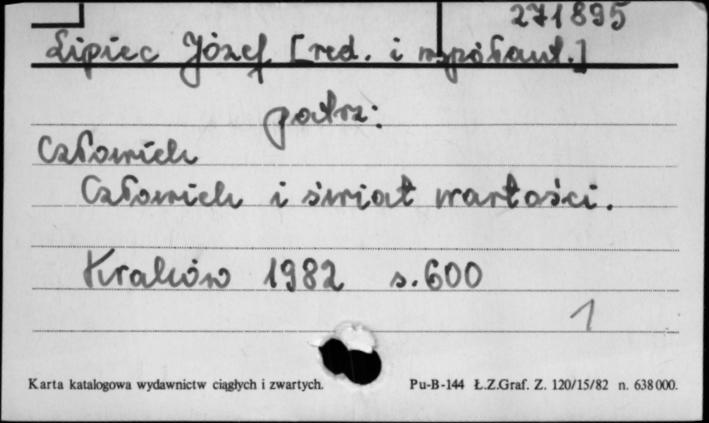 271895
Lipiec Józef [red. i współaut.]
patrz:
Człowiek
Człowiek i świat wartości.
Kraków 1982 s.600
1
Karta katalogowa wydawnictw ciągłych i zwartych. Pu-B-144 Ł.Z.Graf. Z. 120/15/82 n. 638000.